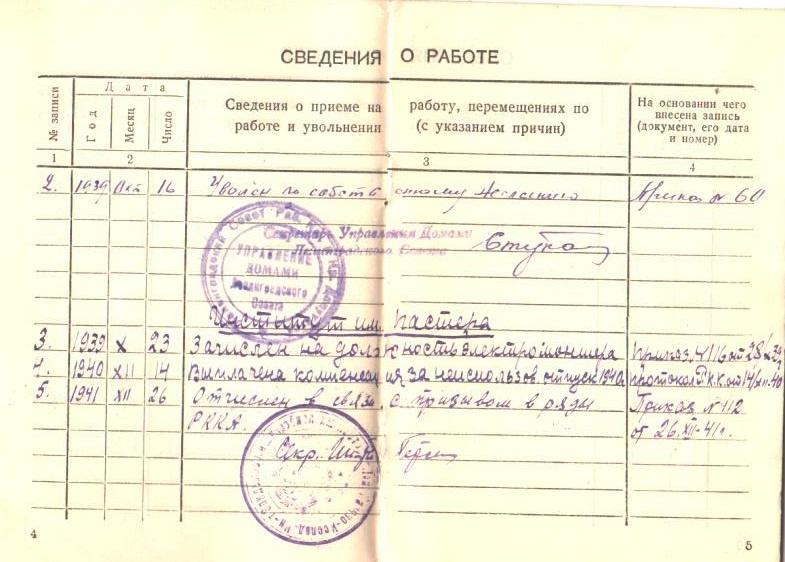 СВЕДЕНИЯ О РАБОТЕ
№ записи
Дата
Год
Месяц
Число
Сведения о приеме на работу, перемещениях по
работе и увольнении (с указанием причин)
На основании чего
внесена запись
(документ, его дата
и номер)
1 2 3 4
2. 1939 Окт 16 Уволен по собственному желанию Приказ № 60
Секретарь Управления Домами
Ленинградского Совета
УПРАВЛЕНИЕ
ДОМАМИ
Ленинградского
Совета
Институт им. Пастера
3. 1939 X 23 Зачислен на должность электромонтера Приказ № 116 от 28/X 39
4. 1940 XII 14 Выплачена компенсация за неиспользов отпуск 1940 протокол РКК от 14/XII-40
5. 1941 XII 26 Отчислен в связи с призывом в ряды Приказ № 112
РККА. от 26.XII-41г.
4
5